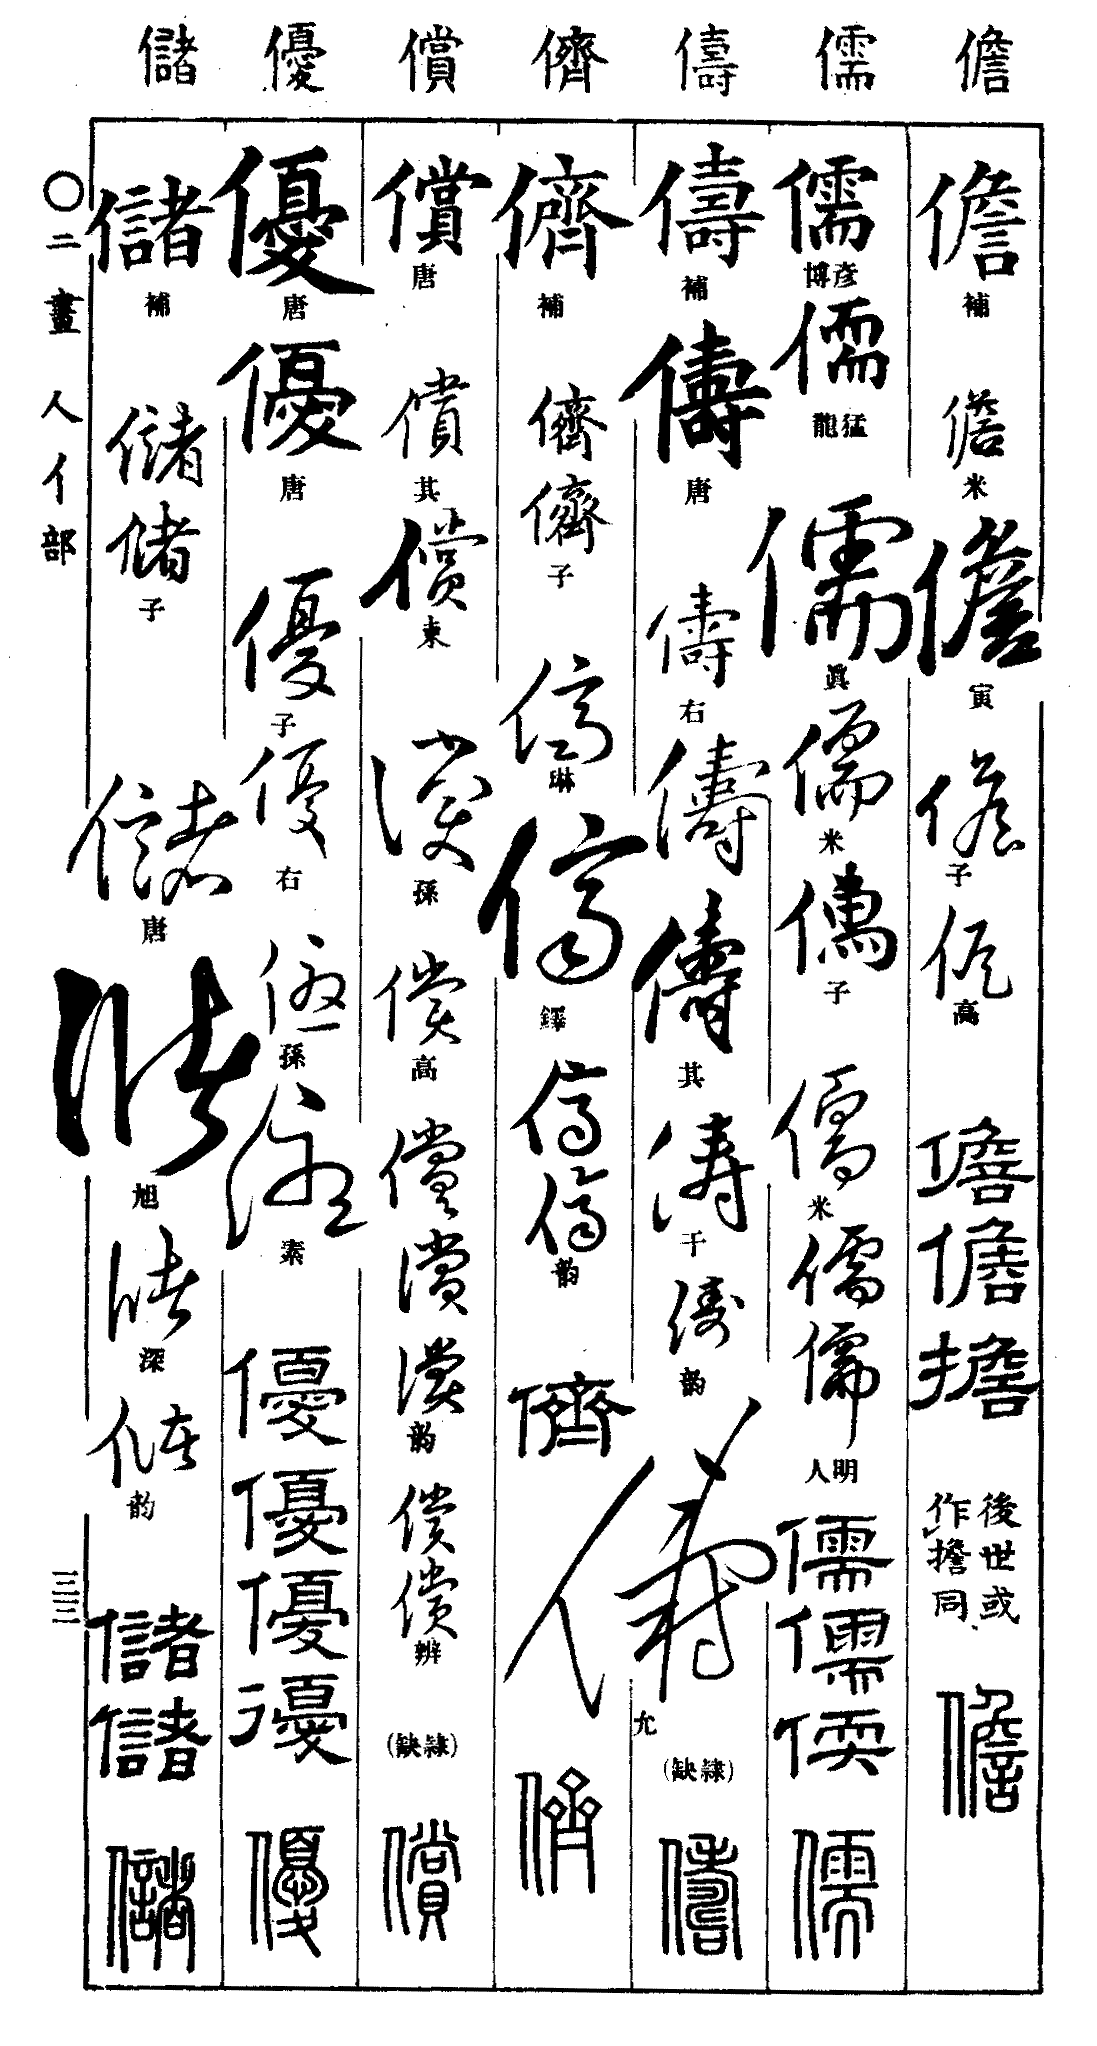 儋 儒 儔 儕 償 優 儲
儋
補
儋
米
儋
寅
儋
子
儋
高
儋
儋
擔
後世或
作擔同
儋
儒
彦博
儒
猛龍
儒
眞
儒
米
儒
子
儒
米
儒
儒
明人
儒
儒
儒
儔
補
儔
唐
儔
右
儔
儔
其
儔
千
儔
韵
儔
允
(隷缺)
儔
儕
補
儕
儕
子
儕
琳
儕
鐸
儕
儕
韵
儕
儕
償
唐
償
其
償
東
償
孫
償
高
償
償
償
韵
償
償
辨
(隷缺)
償
優
唐
優
唐
優
子
優
右
優
孫
優
素
優
優
優
優
優
儲
補
儲
儲
子
儲
唐
儲
旭
儲
深
儲
韵
儲
儲
儲
〇二畫 人亻部
三三